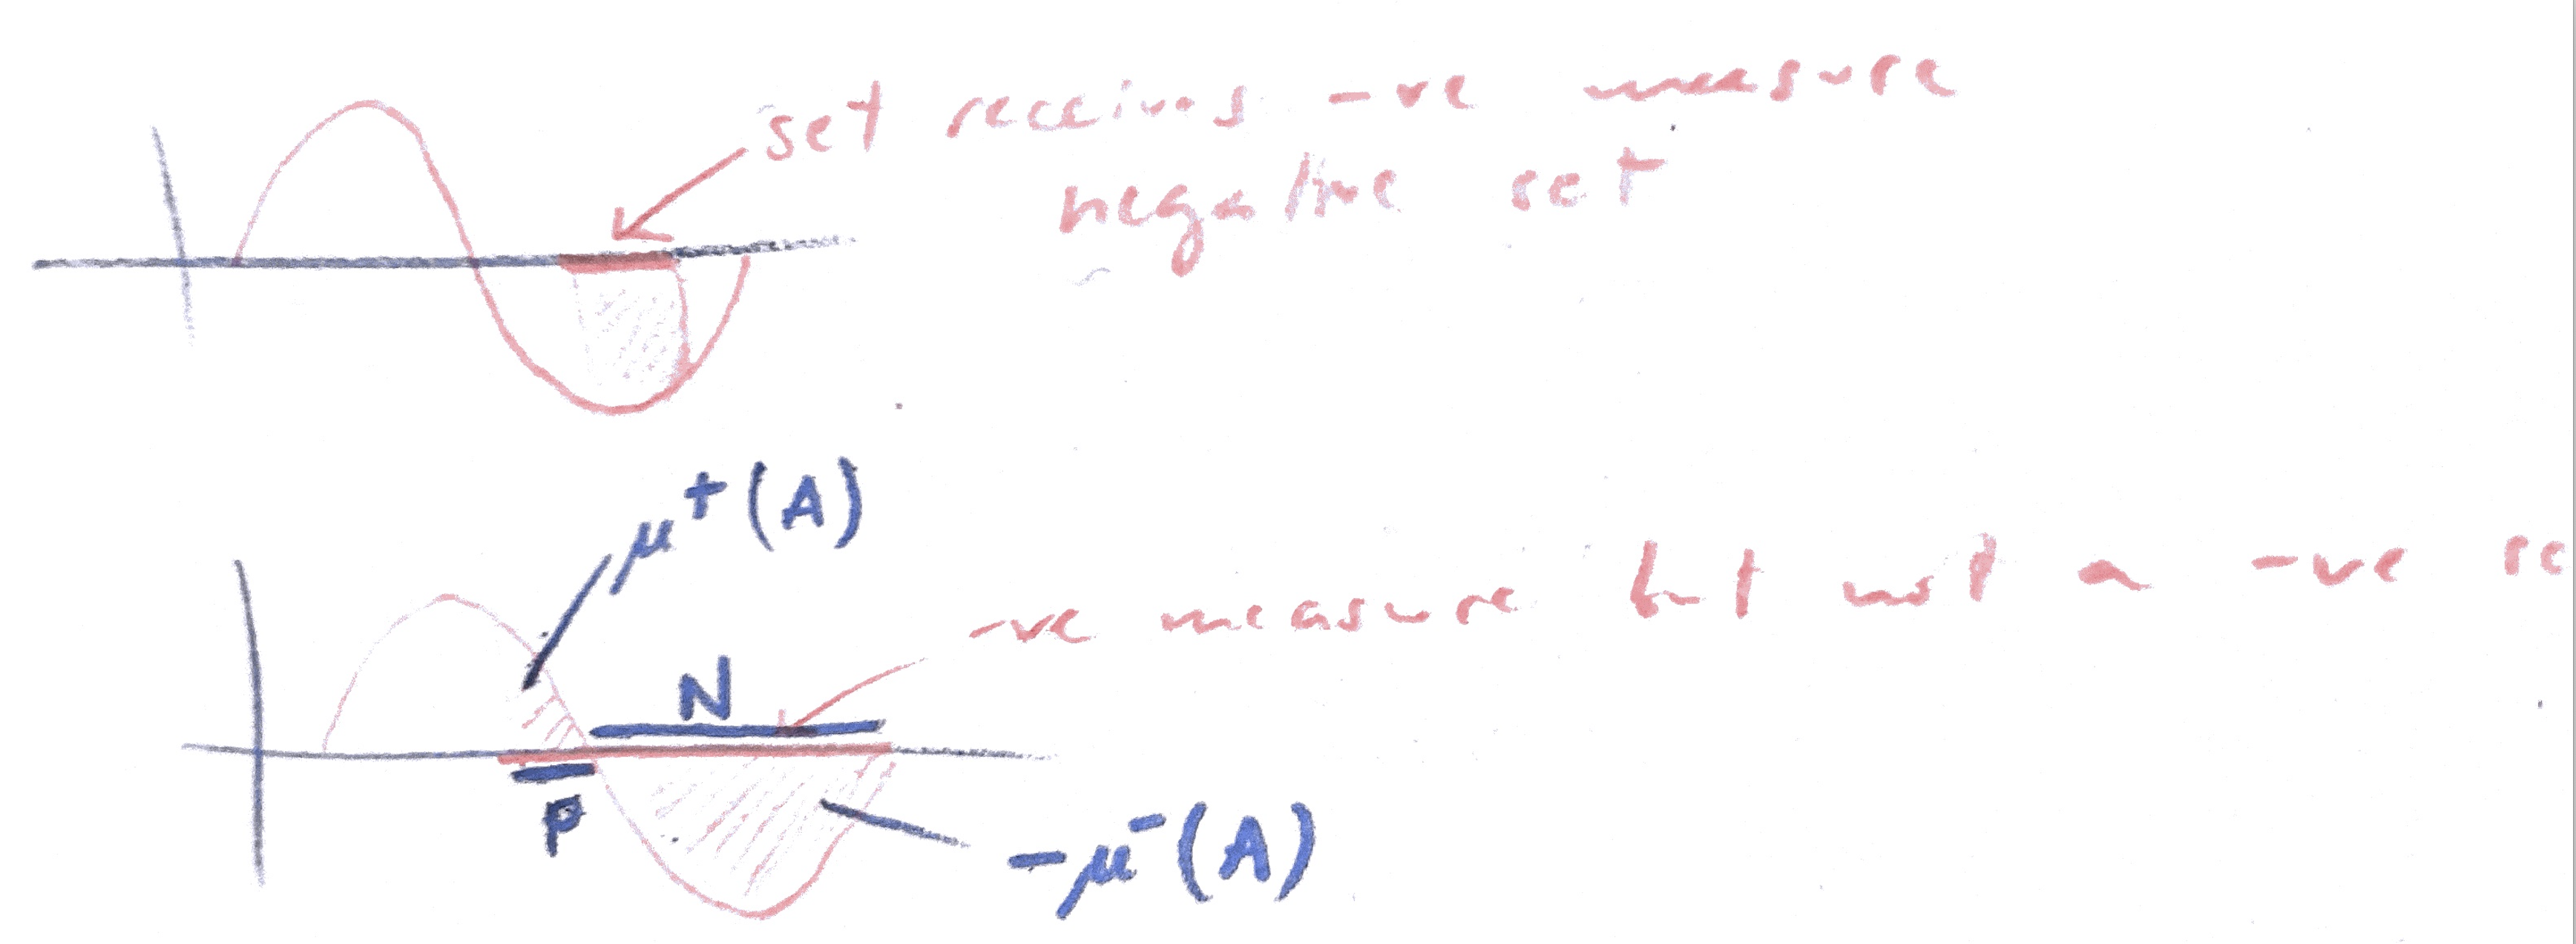 set receives -ve measure
negative set
μ⁺(A)
-ve measure but not a -ve se
N
P
-μ⁻(A)